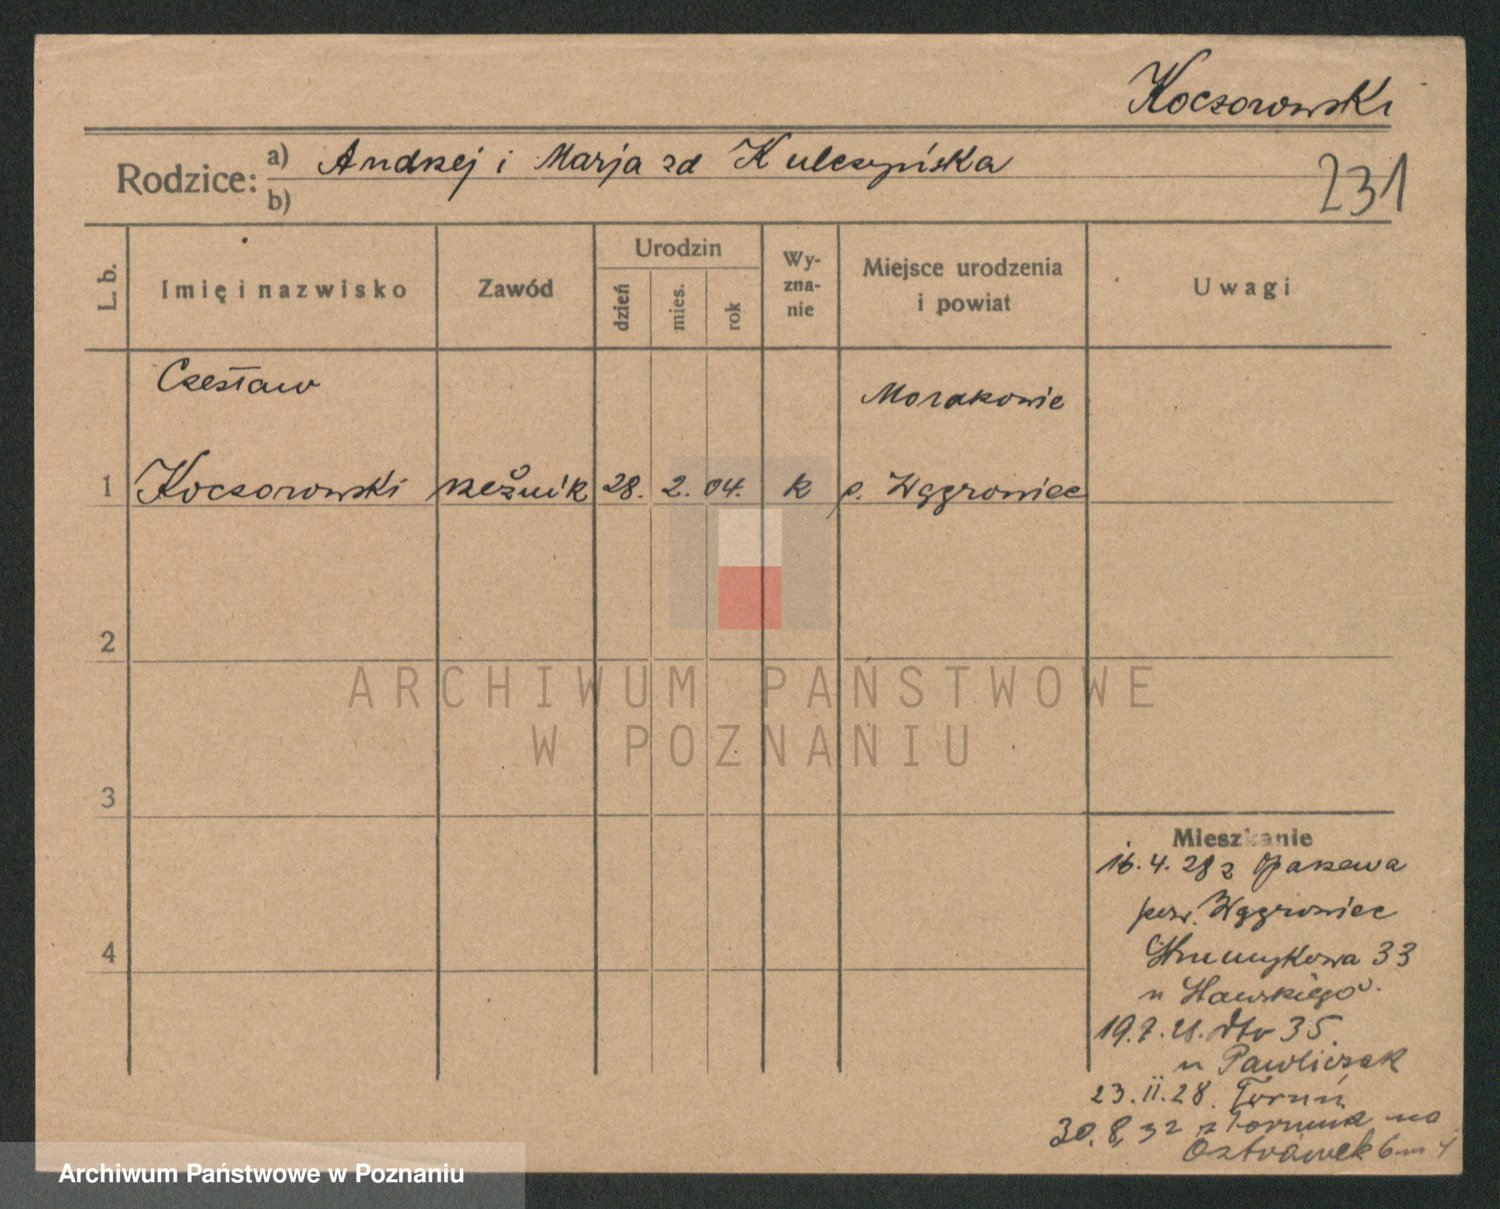 Koczorowski
Rodzice: a) Andrzej i Marja zd Kulczyńska
b)
231
L. b.
Imię i nazwisko
Zawód
Urodzin
dzień
mies.
rok
Wy-
zna-
nie
Miejsce urodzenia
i powiat
Uwagi
Czesław
Morakowie
1 Koczorowski rzeźnik 28. 2. 04. k p. Wągrowiec
2
ARCHIWUM PAŃSTWOWE
W POZNANIU
3
Mieszkanie
16.4.28 z
pow. Wągrowiec
4
Strumykowa 33
u Sławskiego.
dto 35.
u Pawliczak
23.II.28. Toruń
30.8.32 z Torunia na
Ostrówek 6
Archiwum Państwowe w Poznaniu